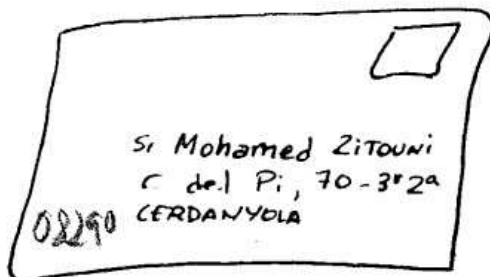 Sr Mohamed ZiTOUNi
C del Pi, 70-3r 2a
08290 CERDANYOLA